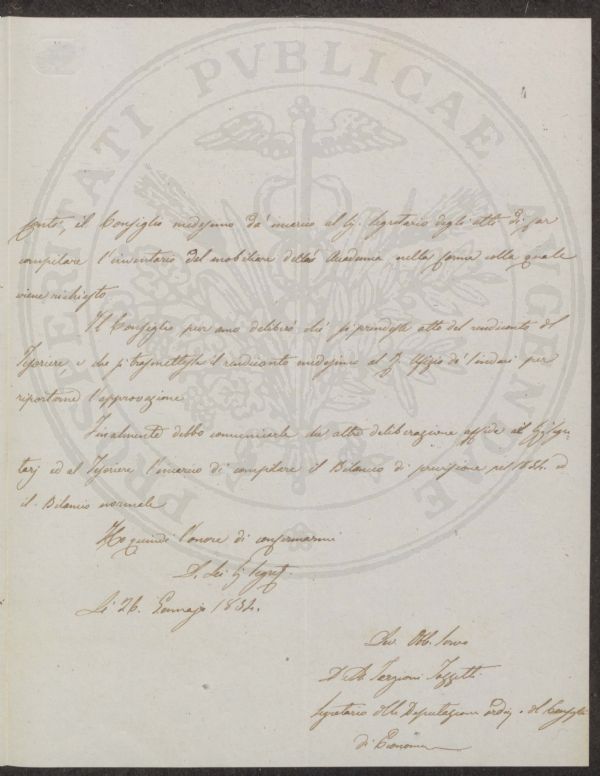 PROSPERITATI PVBLICAE AVGENDAE
conto, il Consiglio medesimo dà incarico al Sig. Segretario degli atti di far
compilare l'inventario del mobiliare dell' Accademia, nella forma colla quale
viene richiesto
Il Consiglio pur anco deliberò che si prendesse atto del rendiconto del
Tesoriere e che si trasmettesse il rendiconto medesimo al Ufizio de' Sindaci per
riportarne l'approvazione
Finalmente debbo comunicarle che altra deliberazione affida ai Segre-
tarj ed al Tesoriere l'incarico di compilare il Bilancio di previsione pel 1834. ed
il Bilancio normale
Ho quindi l'onore di confermarmi
D. Lei Sig. Segret.
Li 26. Gennajo 1834.
Dev. Obb. Servo
Targioni Tozzetti
Segretario della Deputazione ordin. e del Consiglio
di Economia